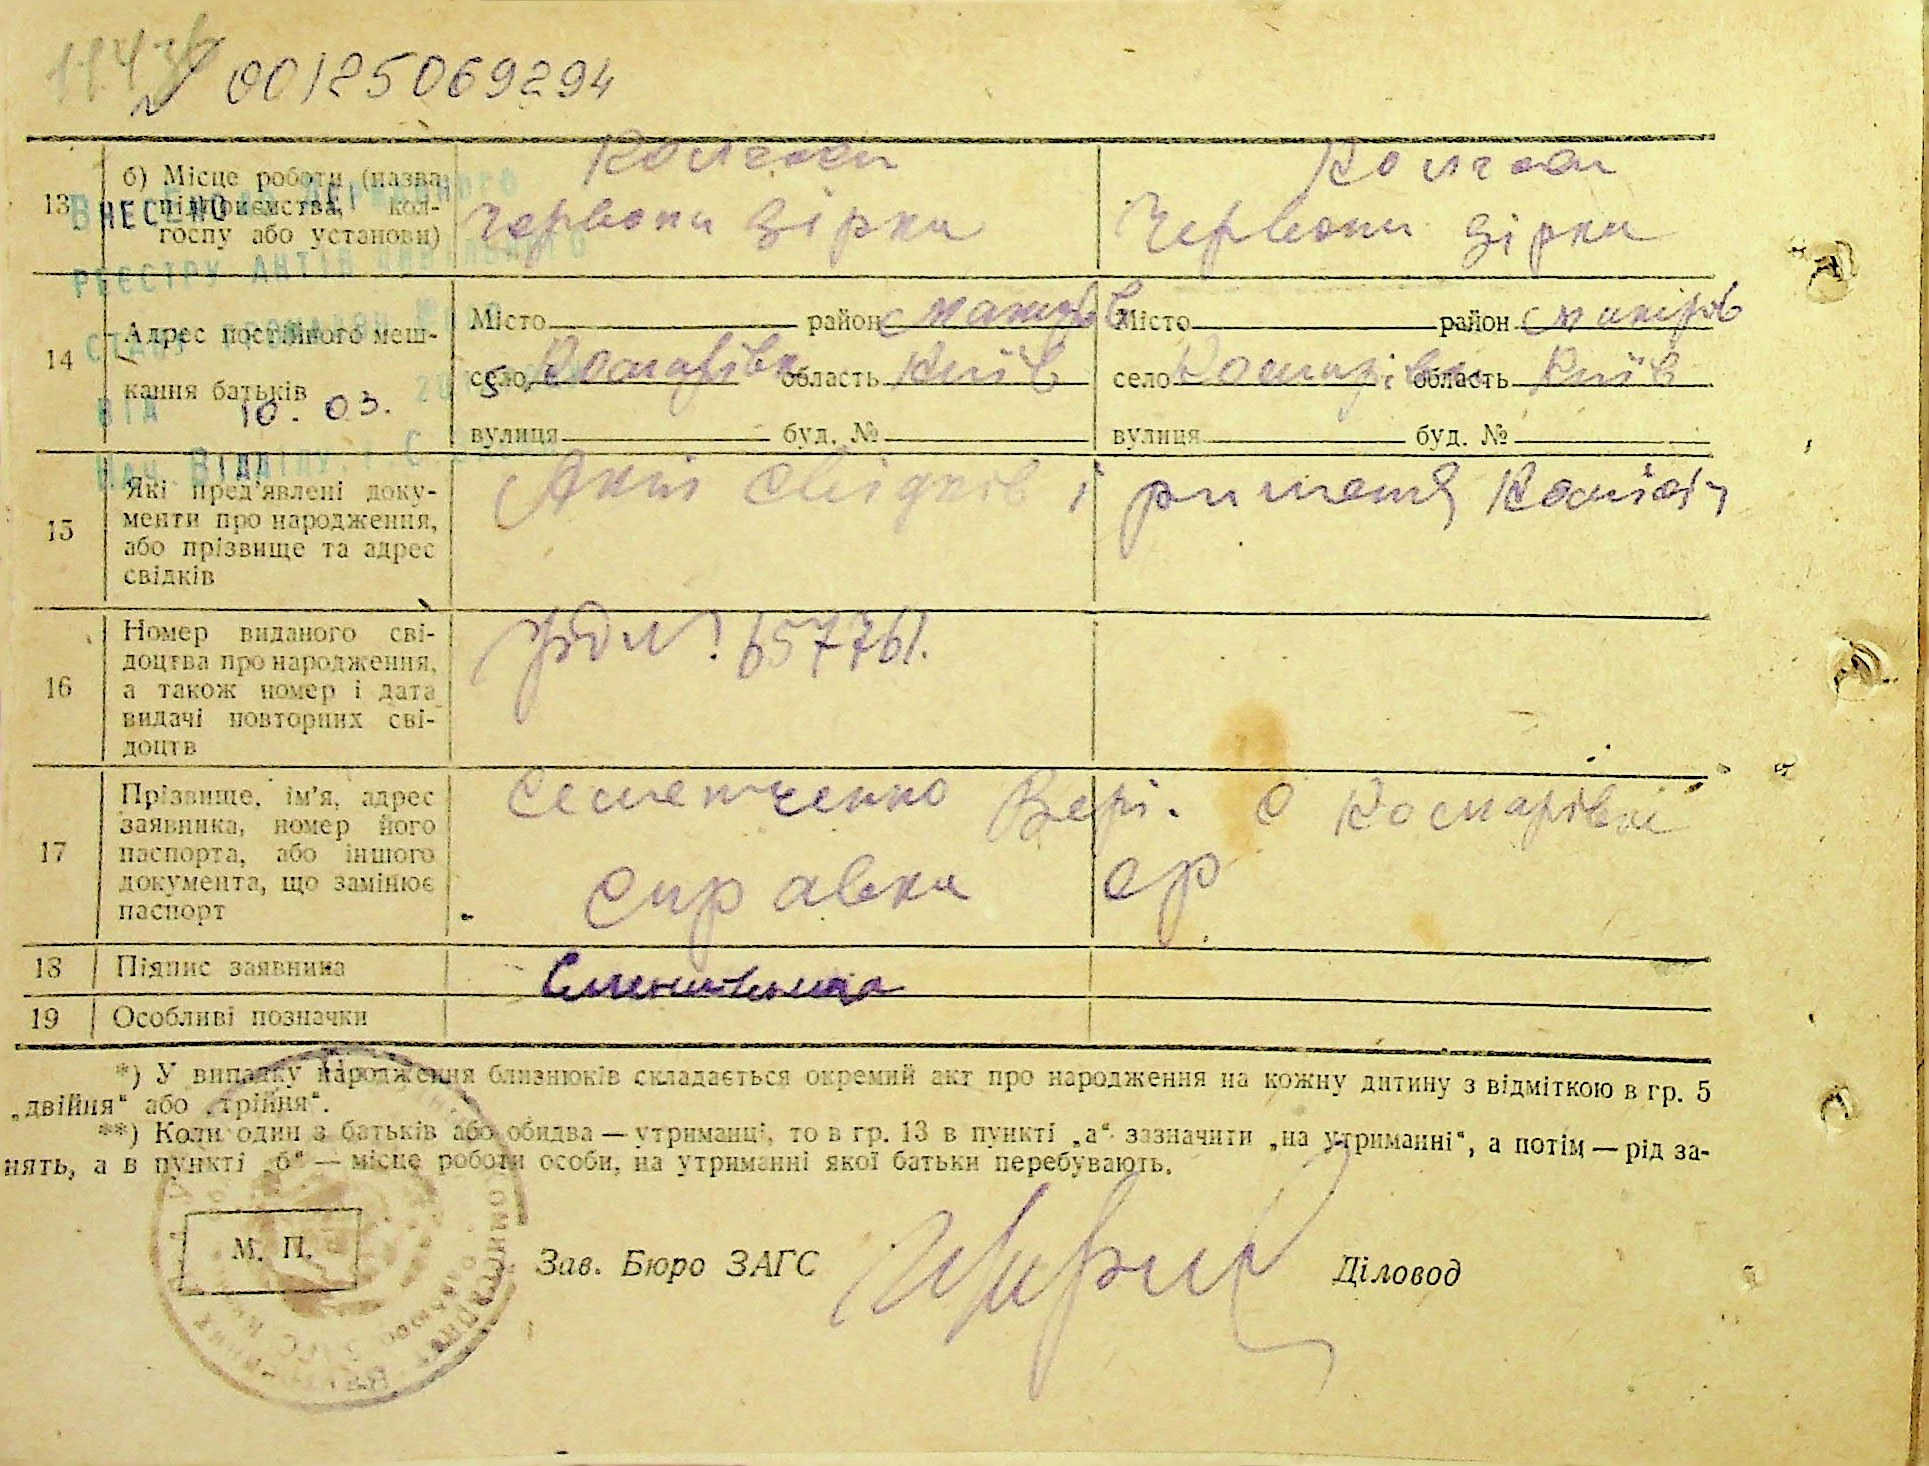 00125069294
13
б) Місце роботи (назва підприємства, кол-
госпу або установи)
Колгосп
Червона Зірка
Колгосп
Червона Зірка
Внесено до Державного
реєстру актів цивільного
стану громадян
від 10.03.
Нач. Відділу
14
Адрес постійного меш-
кання батьків
Місто район Макарів
село Комарівка область Київ
вулиця буд. №
Місто район Макарів
село Комарівка область Київ
вулиця буд. №
15
Які пред'явлені доку-
менти про народження,
або прізвище та адрес
свідків
Акт свідків і
16
Номер виданого сві-
доцтва про народження,
а також номер і дата
видачі повторних сві-
доцтв
657761.
17
Прізвище, ім'я, адрес
заявника, номер його
паспорта, або іншого
документа, що замінює
паспорт
Семенченко Вері. с Комарівка
справка ср
18
Підпис заявника
19
Особливі позначки
*) У випадку народження близнюків складається окремий акт про народження на кожну дитину з відміткою в гр. 5
„двійня“ або „трійня“.
**) Коли один з батьків або обидва — утриманці, то в гр. 13 в пункті „а“ зазначити „на утриманні“, а потім — рід за-
нять, а в пункті „б“ — місце роботи особи, на утриманні якої батьки перебувають.
М. П.
Зав. Бюро ЗАГС
Діловод